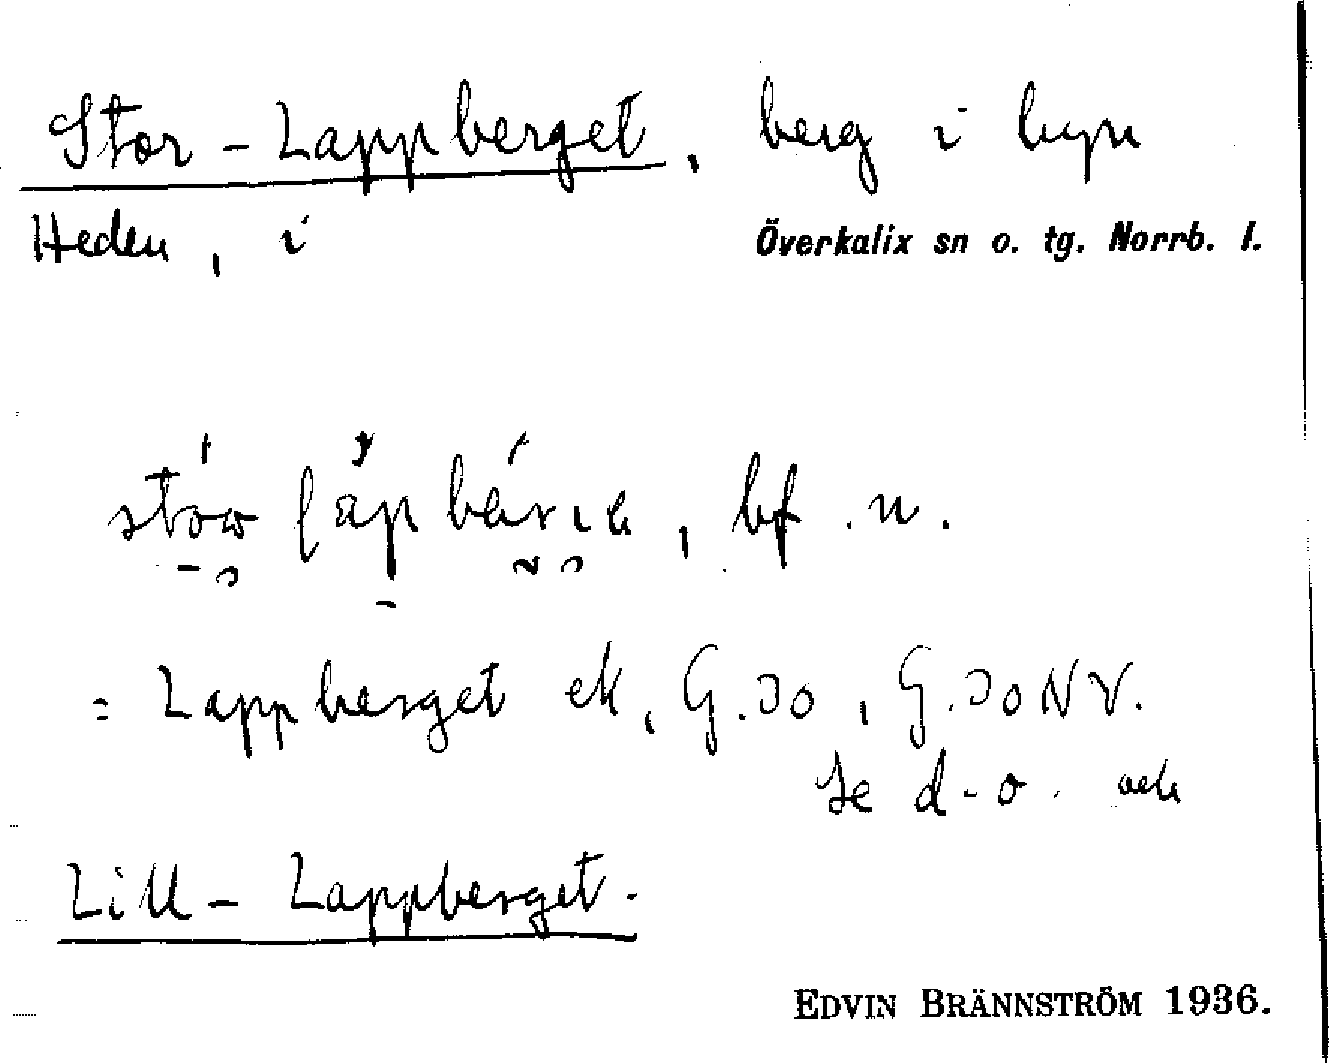 Stor-Lappberget, berg i byn
Heden, i Överkalix sn o. tg. Norrb. l.
bf. n.
= Lappberget ek, G.30, G.30NV.
Se d-o. och
Lill-Lappberget.
EDVIN BRÄNNSTRÖM 1936.